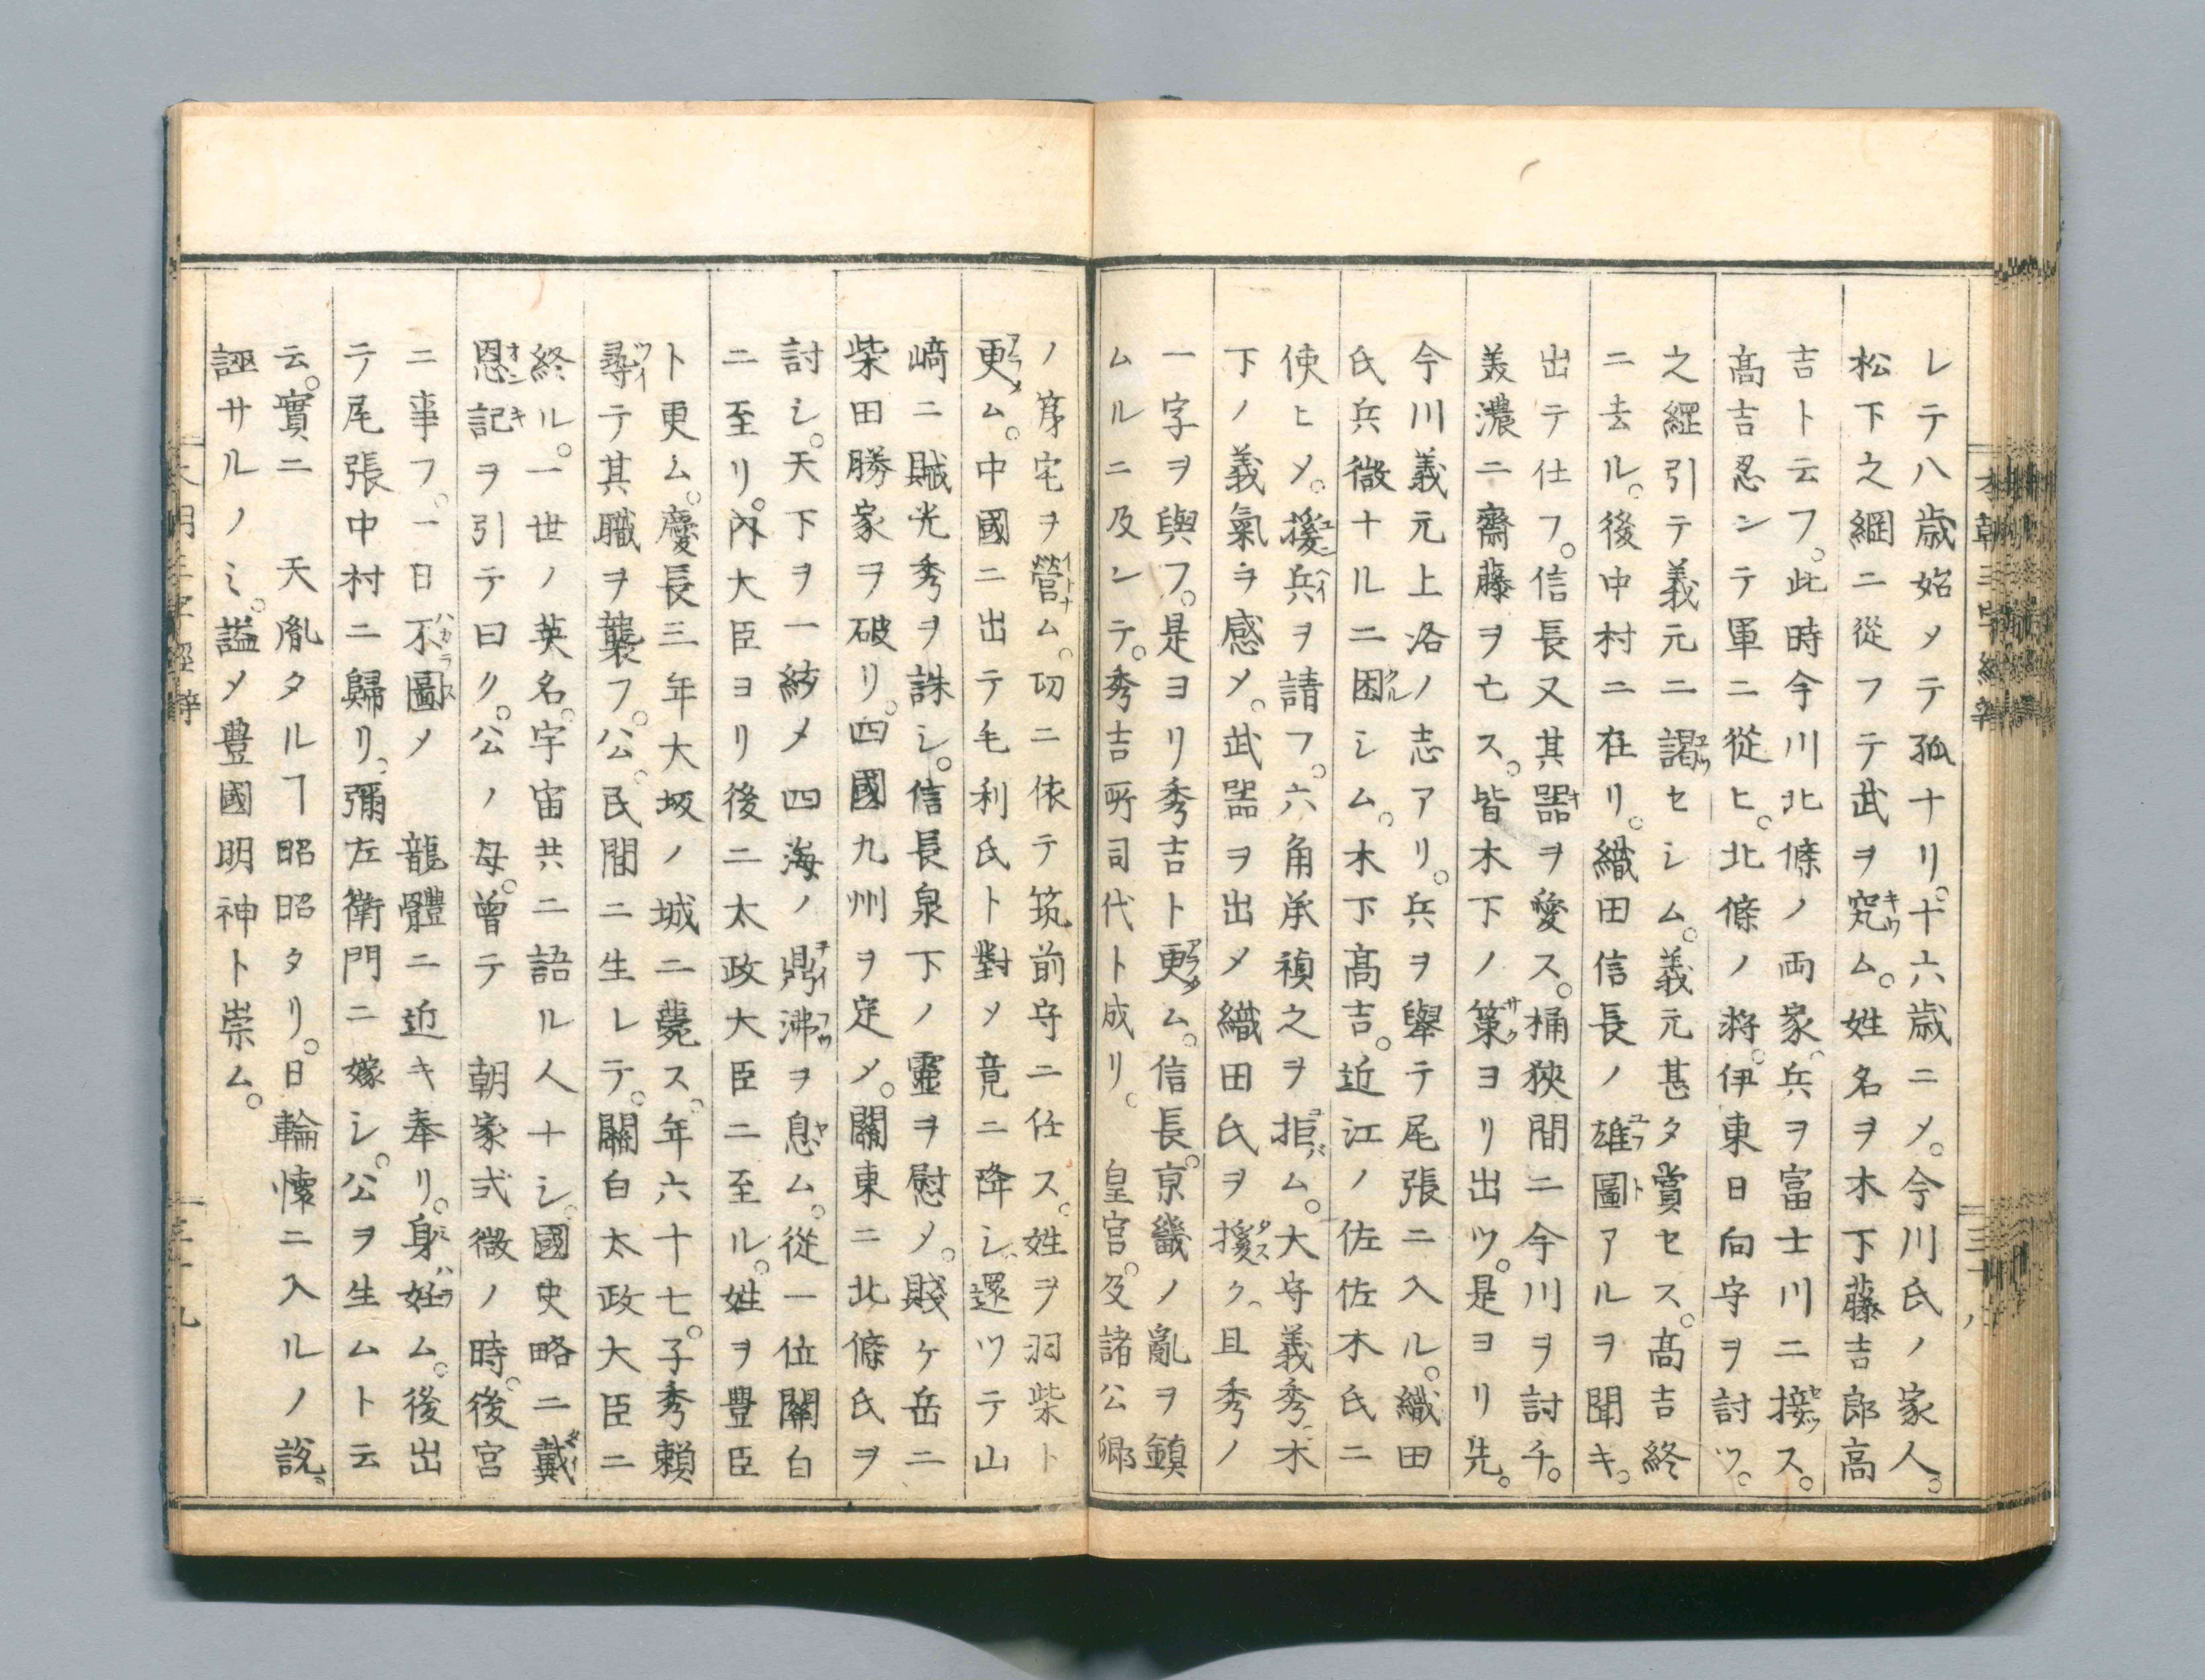 レテ八歳始メテ孤ナリ。十六歳ニメ。今川氏ノ家人。
松下之綱ニ從フテ武ヲ究ム。姓名ヲ木下藤吉郎高
吉ト云フ。此時今川北條ノ両家。兵ヲ富士川ニ接ス。
髙吉忍シテ軍ニ從ヒ。北條ノ將。伊東日向守ヲ討ツ。
之綱引テ義元ニ謁セシム。義元甚タ賞セス。髙吉終
ニ去ル。後中村ニ在リ。織田信長ノ雄圖アルヲ聞キ。
出テ仕フ。信長又其器ヲ愛ス。桶狹間ニ今川ヲ討チ。
美濃ニ齋藤ヲ亡ス。皆木下ノ策ヨリ出ツ。是ヨリ先。
今川義元上洛ノ志アリ。兵ヲ舉テ尾張ニ入ル。織田
氏兵微ナルニ困シム。木下髙吉。近江ノ佐佐木氏ニ
使ヒメ。援兵ヲ請フ。六角承禎之ヲ拒ム。大守義秀。木
下ノ義氣ヲ感メ。武器ヲ出メ織田氏ヲ援ク。且秀ノ
一字ヲ與フ。是ヨリ秀吉ト更ム。信長。京畿ノ亂ヲ鎮
ムルニ及ンテ。秀吉所司代ト成リ。 皇宮。及諸公卿
ノ第宅ヲ營ム。功ニ依テ筑前守ニ任ス。姓ヲ羽柴ト
更ム。中國ニ出テ毛利氏ト對メ竟ニ降シ。還ツテ山
﨑ニ賊光秀ヲ誅シ。信長泉下ノ靈ヲ慰メ。賤ヶ岳ニ
柴田勝家ヲ破リ。四國九州ヲ定メ。關東ニ北條氏ヲ
討シ。天下ヲ一統メ四海ノ鼎沸ヲ息ム。從一位關白
ニ至リ。內大臣ヨリ後ニ太政大臣ニ至ル。姓ヲ豊臣
ト更ム。慶長三年大坂ノ城ニ薨ス。年六十七。子秀頼
尋テ其職ヲ襲フ。公。民間ニ生レテ。關白太政大臣ニ
終ル。一世ノ英名。宇宙共ニ語ル人ナシ。國史略ニ戴
恩記ヲ引テ曰ク。公ノ母。曽テ 朝家式微ノ時。後宮
ニ事フ。一日不圖メ 龍體ニ近キ奉リ。身妊ム。後出
テ尾張中村ニ歸リ。彌左衛門ニ嫁シ。公ヲ生ムト云
云。實ニ 天胤タルヿ昭昭タリ。日輪懷ニ入ルノ説
誣サルノミ。謚メ豊國明神ト崇ム。